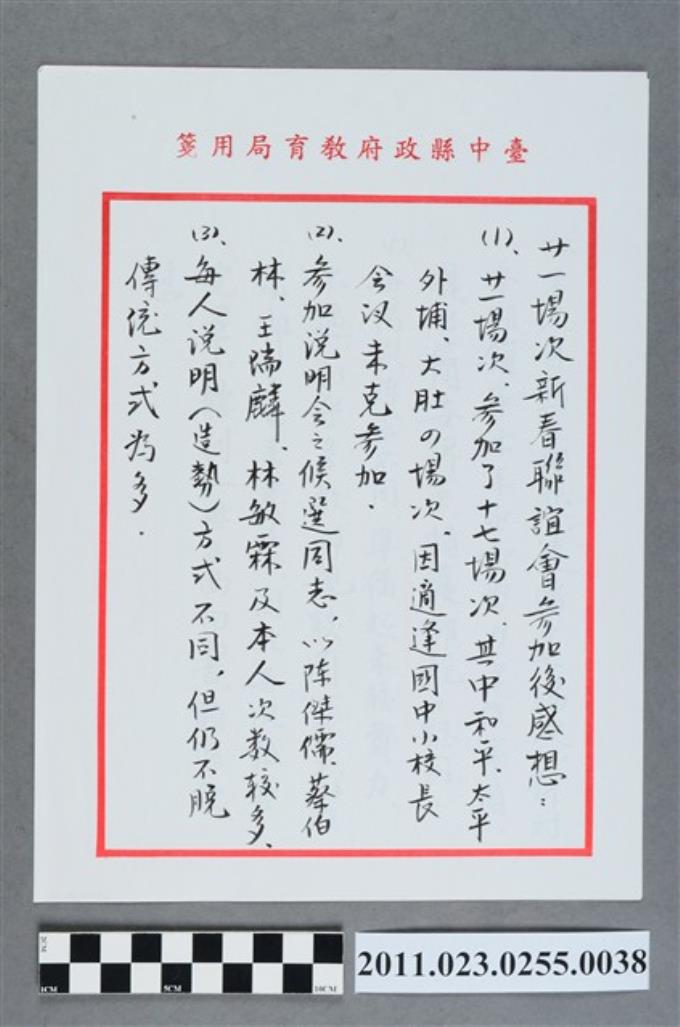 臺中縣政府教育局用箋
廿一場次新春聯誼會參加後感想：
(1)、廿一場次、參加了十七場次、其中和平、太平
外埔、大肚の場次、因適逢國中小校長
会议未克参加．
(2)、參加说明会之候選同志，以陈傑儒、蔡伯
林、王瑞麟、林敏霖及本人次数較多、
(3)、每人说明（造勢）方式不同，但仍不脱
傳统方式为多．
2CM
1CM
5CM
10CM
2011.023.0255.0038